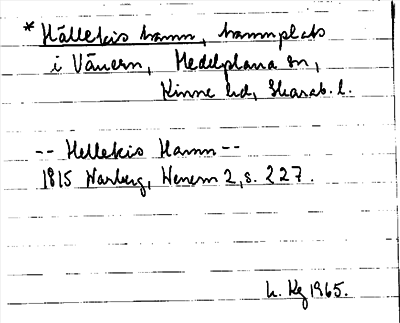 * Hällekis hamn, hamnplats
i Vänern, Medelplana sn,
Kinne hd, Skarab. l.
-- Hellekis Hamn --
1815 Warberg, Wenern 2, s. 227.
L. Kg 1965.